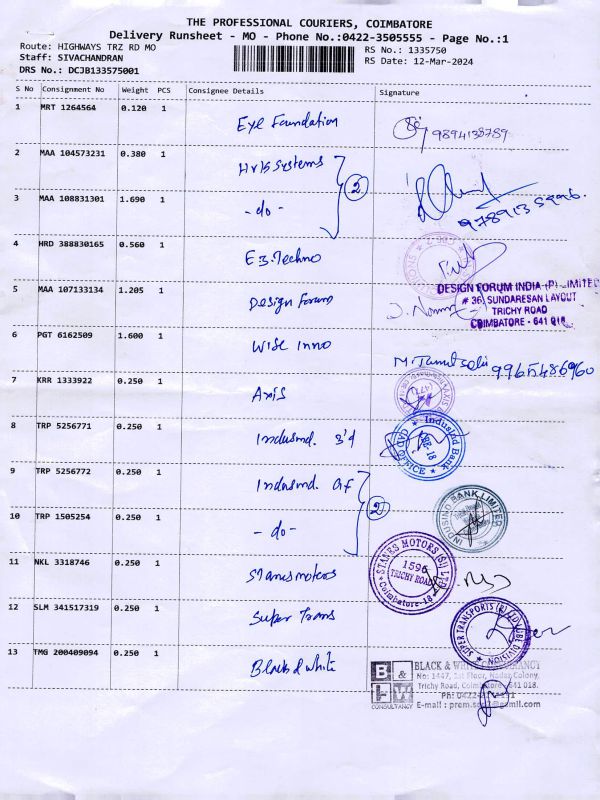 THE PROFESSIONAL COURIERS, COIMBATORE
Delivery Runsheet - MO - Phone No.:0422-3505555 - Page No.:1
Route: HIGHWAYS TRZ RD MO
RS No.: 1335750
Staff: SIVACHANDRAN
RS Date: 12-Mar-2024
DRS No.: DCJB133575001
S No Consignment No Weight PCS Consignee Details Signature
1 MRT 1264564 0.120 1 Eye Foundation 9894138789
2 MAA 104573231 0.380 1 Hris Systems
2
3 MAA 108831301 1.690 1 - do -
4 HRD 388830165 0.560 1 E3 Techno
5 MAA 107133134 1.205 1 Design Forum
DESIGN FORUM INDIA (P) LIMITED
# 36, SUNDARESAN LAYOUT
TRICHY ROAD
COIMBATORE - 641 018.
6 PGT 6162509 1.600 1 Wise Inno
7 KRR 1333922 0.250 1 Axis
8 TRP 5256771 0.250 1 Indusind. 3'd
IndusInd Bank
9 TRP 5256772 0.250 1 Indusind. Gf
2
INDUSIND BANK LIMITED
10 TRP 1505254 0.250 1 - do -
11 NKL 3318746 0.250 1 Stanes motors
STANES MOTORS (SI) LTD
1596
TRICHY ROAD
Coimbatore-18
12 SLM 341517319 0.250 1 Super Trans
SUPER TRANSPORTS (P) LTD DIVISION
13 TMG 200409094 0.250 1 Black & White
B & W
CONSULTANCY
BLACK & WHITE CONSULTANCY
No: 1447, 1st Floor, Nadar Colony,
Trichy Road, Coimbatore - 641 018.
Ph: 0422
E-mail :